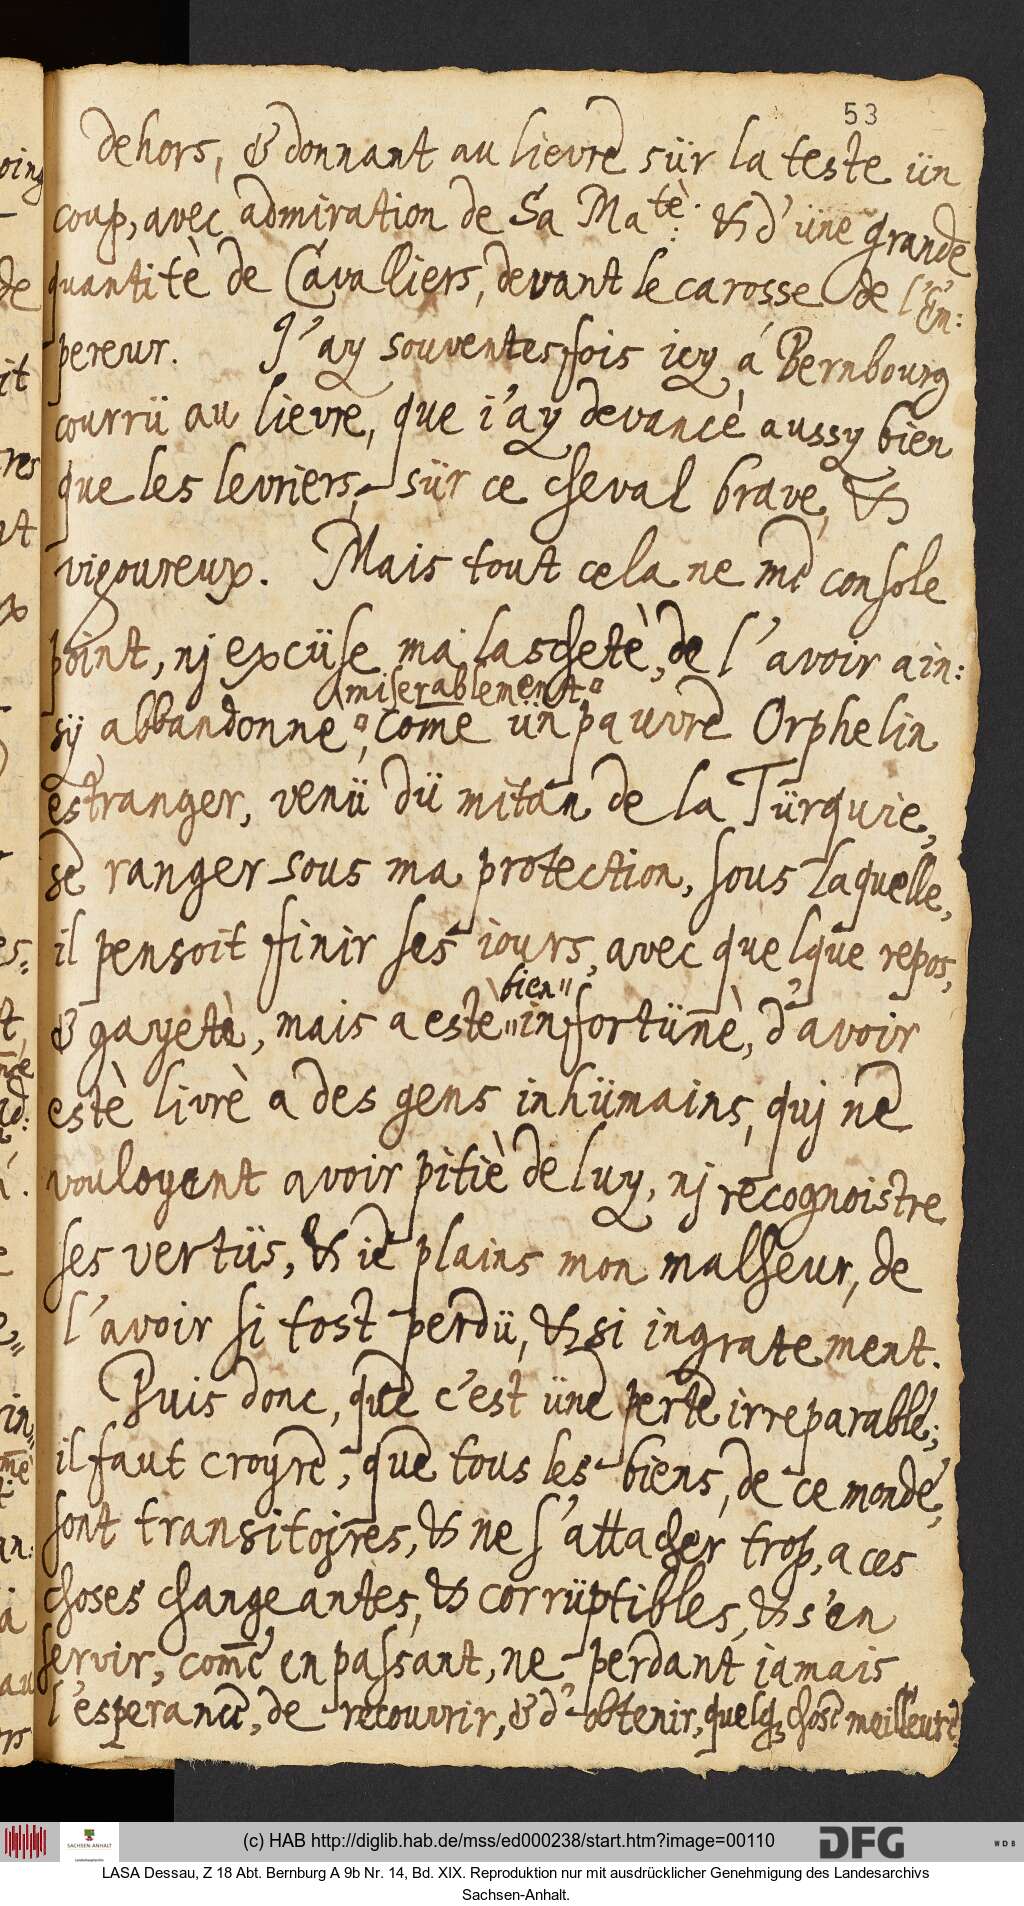 53
dehors, & donnant au lievre sür la teste ün
coup, avec admiration de Sa Ma.tè: & d'üne grande
quantitè de Cavalliers, devant le carosse de l'Em:
pereur. J'ay souventesfois icy á Bernbourg
courrü au lievre, que i'ay devancè aussy bien
que les levriers, sür ce cheval brave, &
vigoureux. Mais tout cela ne me console
point, nj excüse ma laschetè, de l'avoir ain:
miserablement
sÿ abbandonne, come ün pauvre Orphelin
estranger, venü dü mitan de la Türquie,
se ranger sous ma protection, sous laquelle,
il pensoit finir ses iours, avec quelque repos,
bien"
& gayetè, mais a estè "infortünè, d'avoir
estè livrè a des gens inhümains, quj ne
vouloyent avoir pitiè de luy, nj recognoistre
ses vertüs, & ie plains mon malheur, de
l'avoir si tost perdü, & si ingratement.
Puis donc, que c'est üne perte irreparable;
il faut croyre, que tous les biens, de ce monde,
sont transitojres, & ne s'attacher trop, a ces
choses changeantes, & corrüptibles, & s'en
servir, come en passant, ne perdant jamais
l'esperance, de recouvrir, & d'obtenir, quelq, chose meilleure.
(c) HAB http://diglib.hab.de/mss/ed000238/start.htm?image=00110
SACHSEN-ANHALT
DFG
WDB
LASA Dessau, Z 18 Abt. Bernburg A 9b Nr. 14, Bd. XIX. Reproduktion nur mit ausdrücklicher Genehmigung des Landesarchivs
Sachsen-Anhalt.